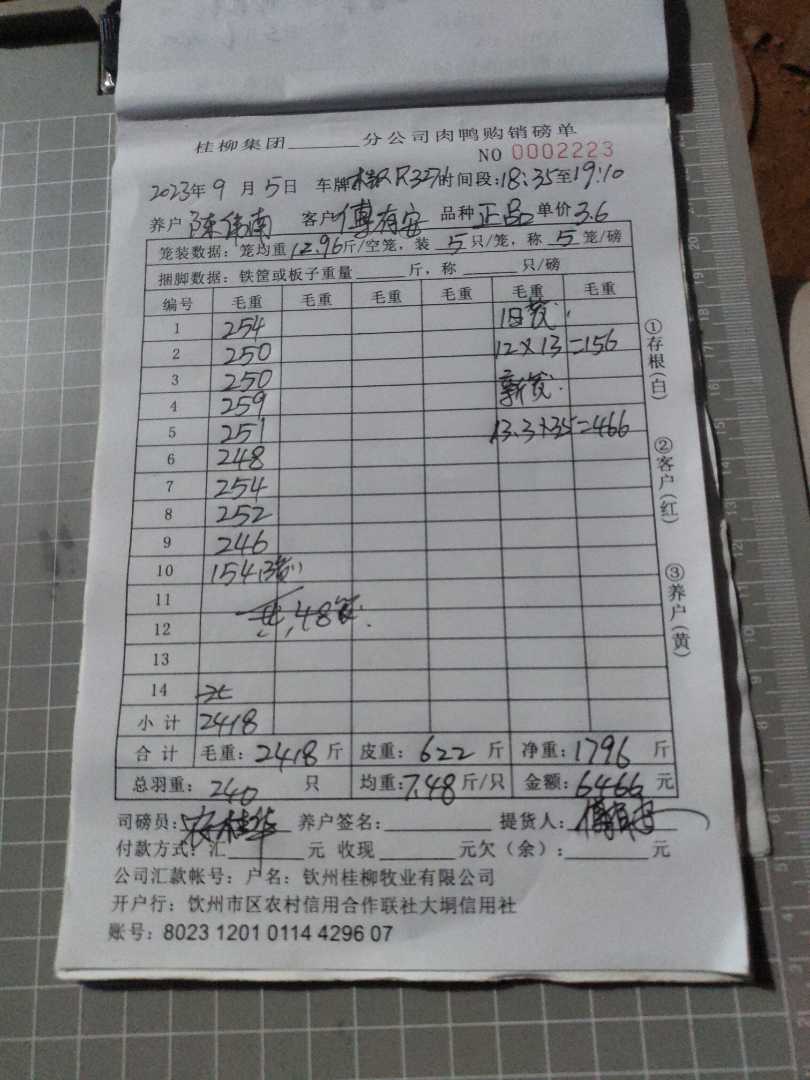 桂柳集团______分公司肉鸭购销磅单
NO 0002223
2023年 9 月 5日 车牌 R327 时间段:18:35至19:10
养户 陈伟南 客户 傅有安 品种 正品 单价 3.6
笼装数据:笼均重 12.96斤/空笼,装 5 只/笼,称 5 笼/磅
捆脚数据:铁筐或板子重量______斤,称______只/磅
编号 毛重 毛重 毛重 毛重 毛重 毛重
1 254 旧笼
2 250 12×13=156
3 250 新笼
4 259
5 251 13.3×35=466
6 248
7 254
8 252
9 246
10 154(3笼)
11
12 共48笼
13
14
小计 2418
合计 毛重:2418 斤 皮重:622 斤 净重:1796 斤
总羽重:240 只 均重:7.48 斤/只 金额:6466 元
司磅员: 桂华 养户签名:______ 提货人:傅有安
付款方式:汇______元 收现______元欠(余):______元
公司汇款帐号:户名:钦州桂柳牧业有限公司
开户行:饮州市区农村信用合作联社大垌信用社
账号:8023 1201 0114 4296 07
①存根(白)
②客户(红)
③养户(黄)